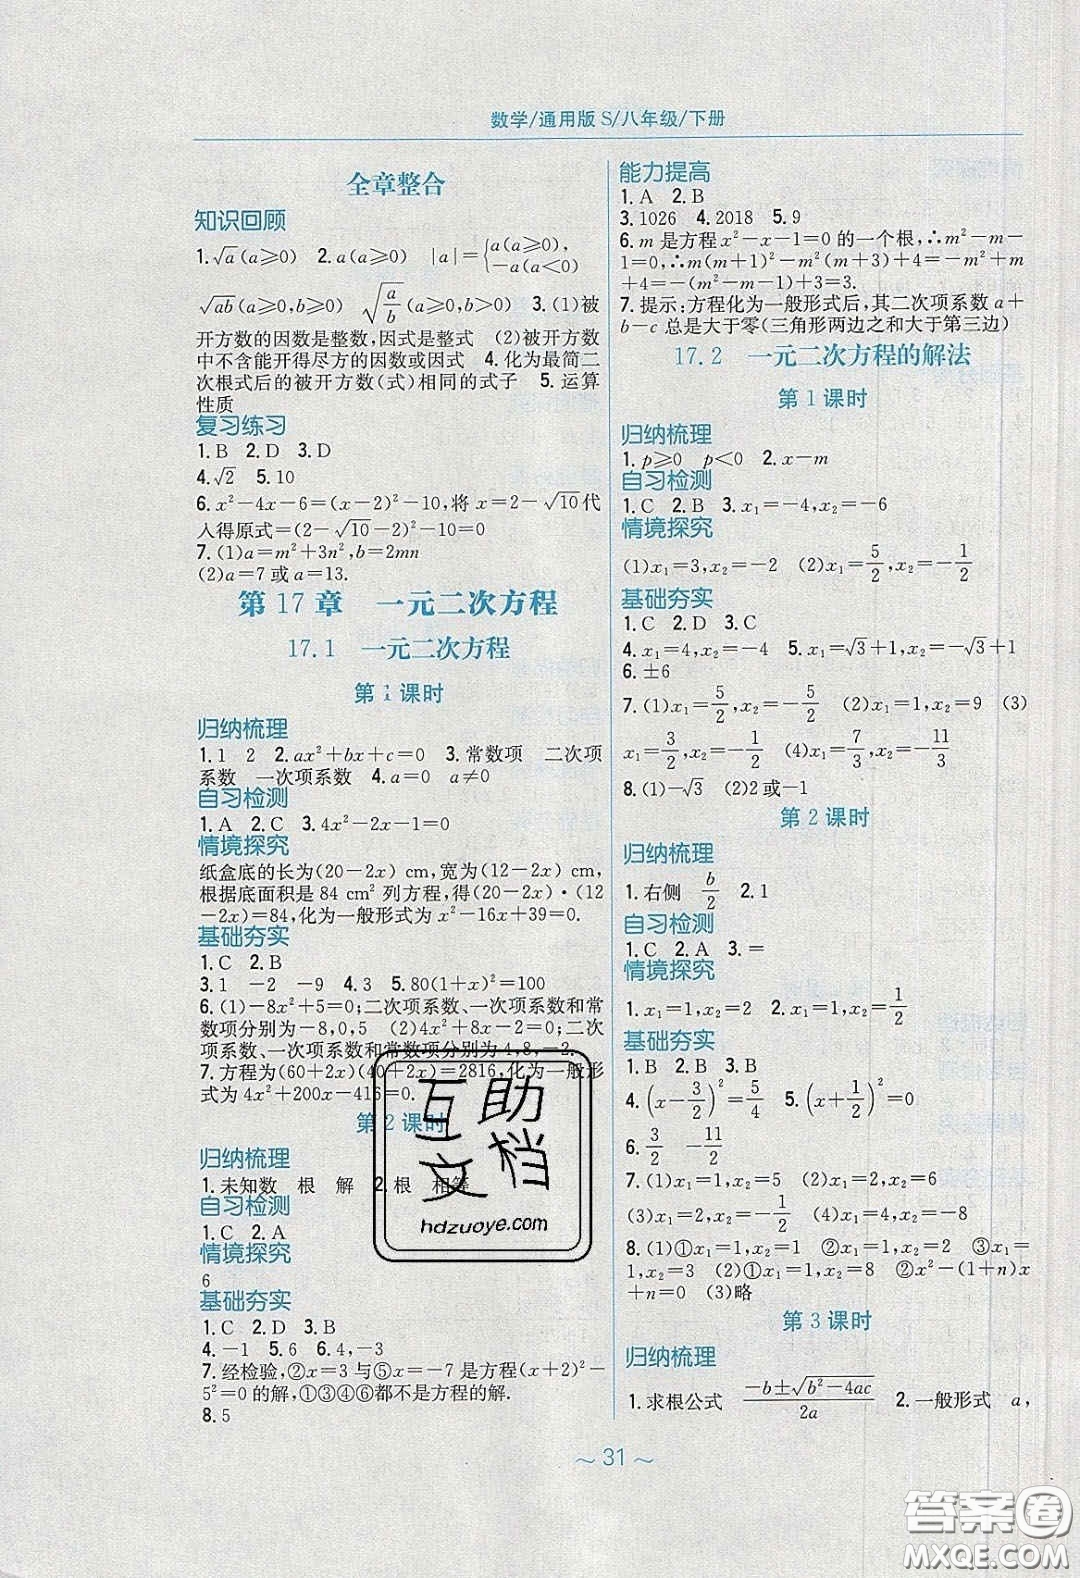 数学/通用版 S/八年级/下册
全章整合
知识回顾
1.√a(a⩾0)  2.a(a⩾0)  |a|={a(a⩾0), -a(a<0)
√ab(a⩾0,b⩾0)  √(a/b)(a⩾0,b>0)  3.(1)被
开方数的因数是整数,因式是整式  (2)被开方数
中不含能开得尽方的因数或因式  4.化为最简二
次根式后的被开方数(式)相同的式子  5.运算
性质
复习练习
1.B  2.D  3.D
4.√2  5.10
6.x²-4x-6=(x-2)²-10,将 x=2-√10代
入得原式=(2-√10-2)²-10=0
7.(1)a=m²+3n²,b=2mn
(2)a=7或a=13.
第 17 章  一元二次方程
17.1  一元二次方程
第1课时
归纳梳理
1.1  2  2.ax²+bx+c=0  3.常数项  二次项
系数  一次项系数  4.a=0  a≠0
自习检测
1.A  2.C  3.4x²-2x-1=0
情境探究
纸盒底的长为(20-2x) cm,宽为(12-2x) cm,
根据底面积是 84 cm² 列方程,得(20-2x)·(12
-2x)=84,化为一般形式为 x²-16x+39=0.
基础夯实
1.C  2.B
3.1  -2  -9  4.3  5.80(1+x)²=100
6.(1)-8x²+5=0;二次项系数、一次项系数和常
数项分别为-8,0,5  (2)4x²+8x-2=0;二次
项系数、一次项系数和常数项分别为4,8,-2.
7.方程为(60+2x)(40+2x)=2816,化为一般形
式为 4x²+200x-416=0.
第2课时
归纳梳理
1.未知数  根  解  2.根  相等
自习检测
1.C  2.A
情境探究
6
基础夯实
1.C  2.D  3.B
4.-1  5.6  6.4,-1
7.经检验,②x=3 与⑤x=-7 是方程(x+2)²-
5²=0 的解,①③④⑥都不是方程的解.
8.5
能力提高
1.A  2.B
3.1026  4.2018  5.9
6.m 是方程 x²-x-1=0 的一个根,∴m²-m-
1=0,∴m(m+1)²-m²(m+3)+4=-m²+m
+4=-(m²-m-1)+3=3.
7.提示:方程化为一般形式后,其二次项系数 a+
b-c 总是大于零(三角形两边之和大于第三边)
17.2  一元二次方程的解法
第1课时
归纳梳理
1.p⩾0  p<0  2.x-m
自习检测
1.C  2.B  3.x₁=-4,x₂=-6
情境探究
(1)x₁=3,x₂=-2  (2)x₁=5/2,x₂=-1/2
基础夯实
1.C  2.D  3.C
4.x₁=4,x₂=-4  5.x₁=√3+1,x₂=-√3+1
6.±6
7.(1)x₁=5/2,x₂=-5/2  (2)x₁=1,x₂=9  (3)
x₁=3/2,x₂=-1/2  (4)x₁=7/3,x₂=-11/3
8.(1)-√3  (2)2或-1
第2课时
归纳梳理
1.右侧  b/2  2.1
自习检测
1.C  2.A  3.=
情境探究
1.x₁=1,x₂=2  2.x₁=1,x₂=1/2
基础夯实
1.B  2.B  3.B
4.(x-3/2)²=5/4  5.(x+1/2)²=0
6.3/2  -11/2
7.(1)x₁=1,x₂=-5  (2)x₁=2,x₂=6
(3)x₁=2,x₂=-1/2  (4)x₁=4,x₂=-8
8.(1)①x₁=1,x₂=1  ②x₁=1,x₂=2  ③x₁=
1,x₂=3  (2)①x₁=1,x₂=8  ②x²-(1+n)x
+n=0  (3)略
第3课时
归纳梳理
1.求根公式  (-b±√(b²-4ac))/2a  2.一般形式  a,
～31～
互助
文档
hdzuoye.com
答案圈
MXQE.COM